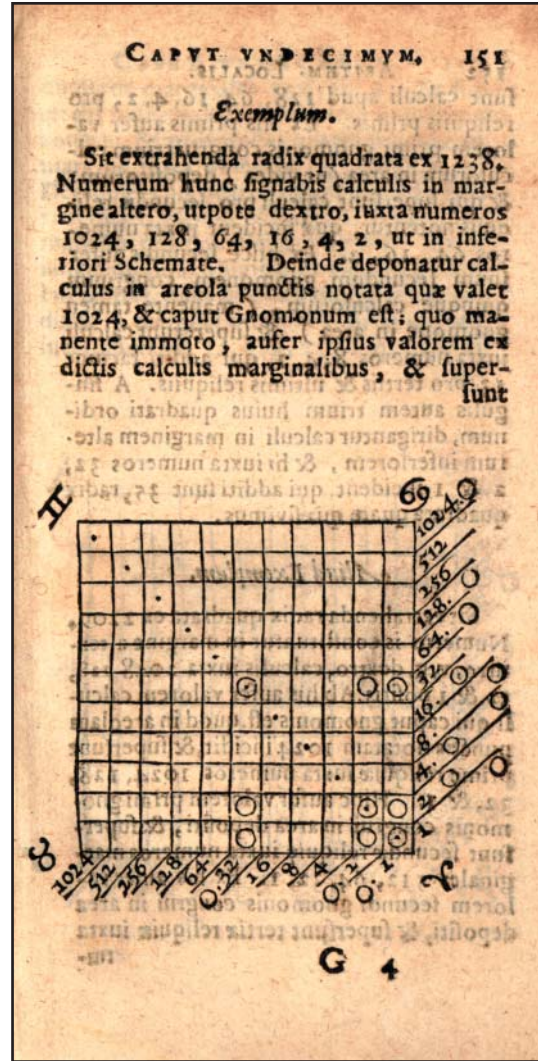 CAPVT VNDECIMVM. 151
Exemplum.
Sit extrahenda radix quadrata ex 1238.
Numerum hunc ſignabis calculis in mar-
gine altero, utpote dextro, iuxta numeros
1024, 128, 64, 16, 4, 2, ut in infe-
riori Schemate. Deinde deponatur cal-
culus in areola punctis notata quæ valet
1024, & caput Gnomonum eſt; quo ma-
nente immoto, aufer ipſius valorem ex
dictis calculis marginalibus, & ſuper-
ſunt
♊ ♋
1024.
512
256
128.
64.
32
16.
8.
4.
2.
1.
♉ ♈
1024 512 256 128 64 32 16 8 4 2 1
G 4